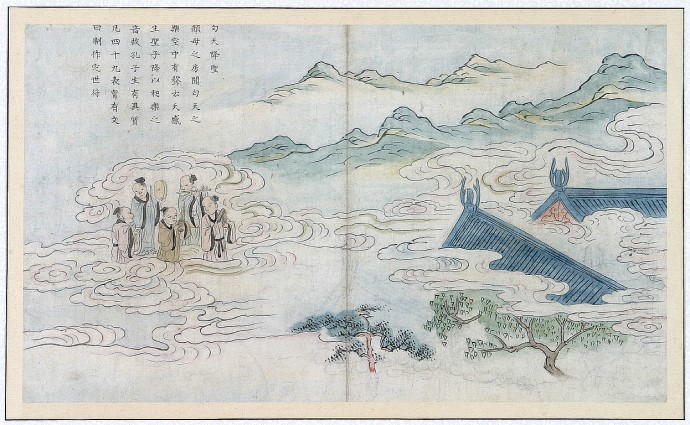 勻天降聖
顏母之房聞勻天之
樂空中有聲云天感
生聖子降以和樂之
音故孔子生有異質
凡四十九表胷有文
曰制作定世符